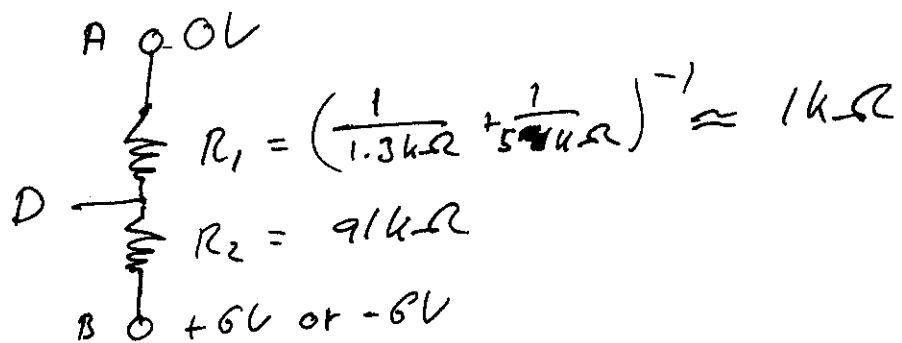 A 0V
R₁ = (1/1.3kΩ + 1/5kΩ)⁻¹ ≈ 1kΩ
D
R₂ = 91kΩ
B +6V or -6V